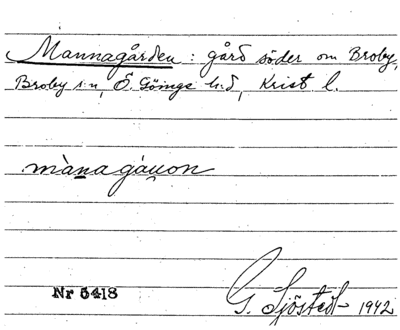 Mannagården : gård söder om Broby,
Broby s:n, Ö. Göinge h:d, Krist. l.
mànagàu̯on
Nr 5418
G. Sjöstedt 1942